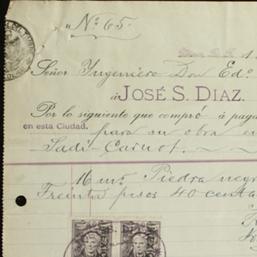 Nº 65
Señor Ingeniero Don Ed
á JOSÉ S. DIAZ.
Por lo siguiente que compró á paga
en esta Ciudad. para su obra en
Sadi-Carnot.
16 mts Piedra neg
Treinta pesos 40 centa